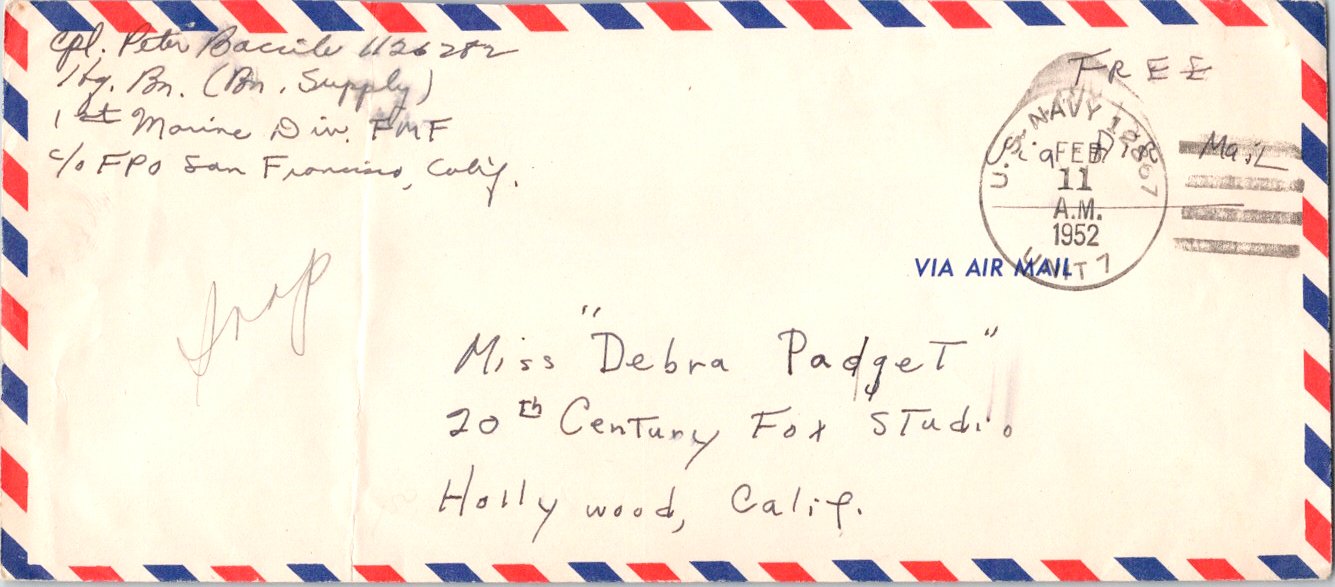 Cpl. Peter 1126282
Hq. Bn. (Bn. Supply)
1st Marine Div. FMF
c/o FPO San Francisco, Calif.
FREE
Mail
U.S. NAVY 12867
FEB
11
A.M.
1952
UNIT 7
VIA AIR MAIL
Miss "Debra Padget"
20th Century Fox Studio
Hollywood, Calif.